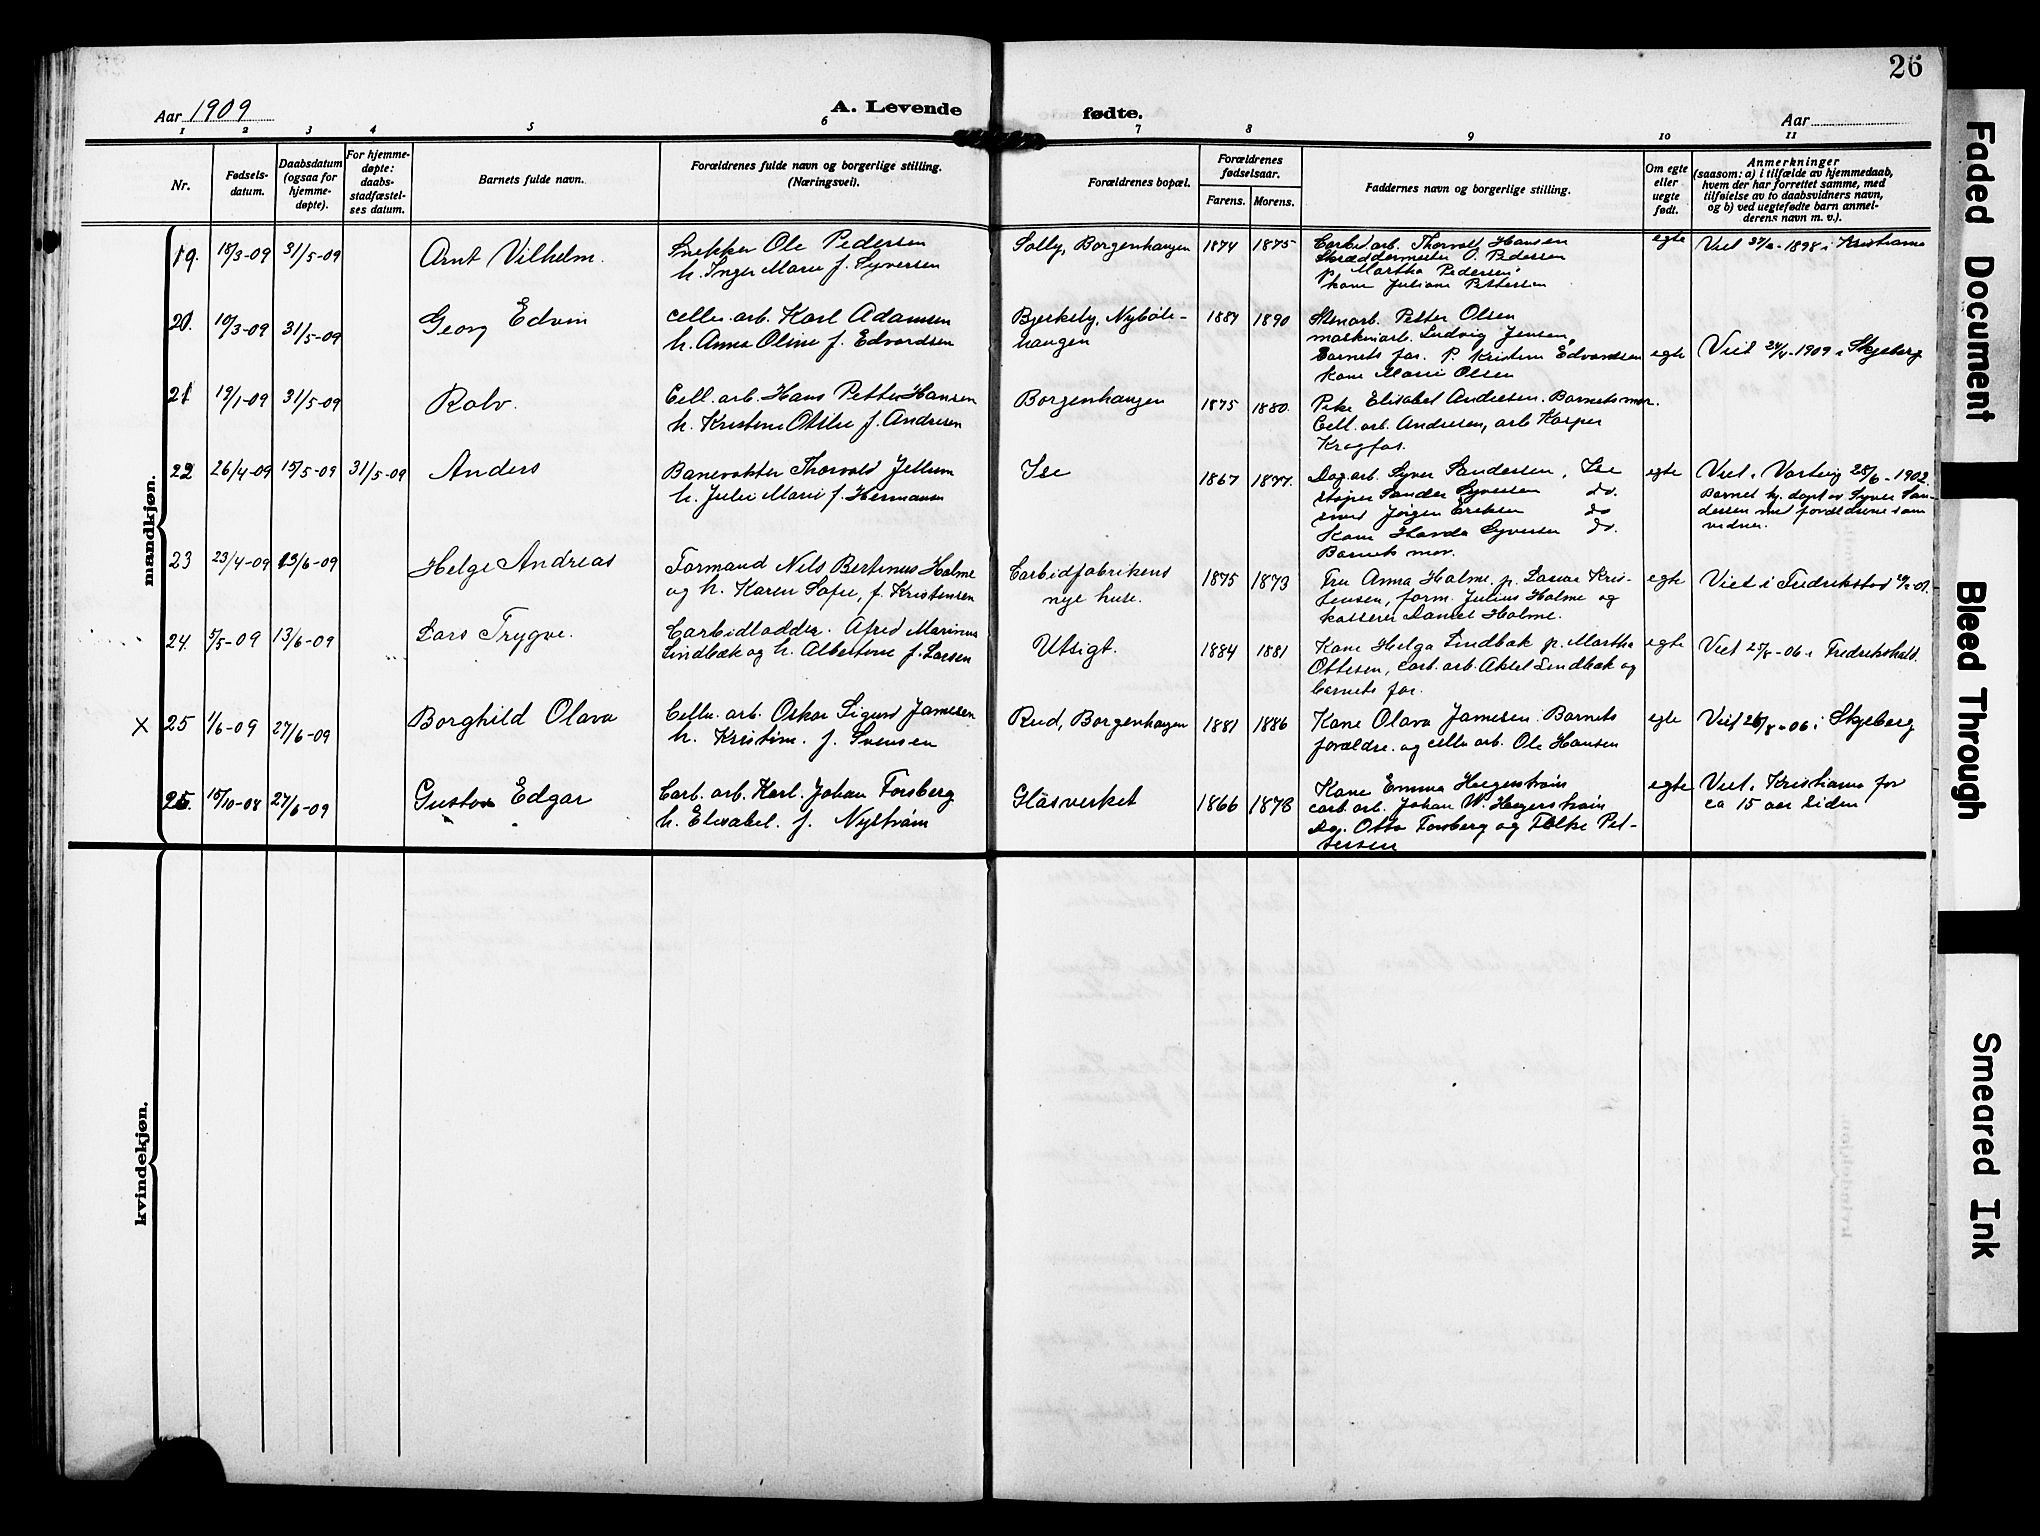 26
Aar 1909
A. Levende
fødte.
Aar
1 2 3 4 5 6 7 8 9 10 11
Nr.
Fødsels-
datum.
Daabsdatum
(ogsaa for
hjemme-
døpte).
For hjemme-
døpte:
daabs-
stadfæstel-
ses datum.
Barnets fulde navn.
Forældrenes fulde navn og borgerlige stilling.
(Næringsvei).
Forældrenes bopæl.
Forældrenes
fødselsaar.
Farens. Morens.
Faddernes navn og borgerlige stilling.
Om egte
eller
uegte
født.
Anmerkninger
(saasom: a) i tilfælde av hjemmedaab,
hvem der har forrettet samme, med
tilføielse av to daabsvidners navn,
og b) ved uegtefødte barn anmel-
derens navn m. v.).
mandkjøn.
19. 18/3-09 31/5-09
Arnt Vilhelm.
Snekker Ole Pedersen
h. Inger Marie f. Syversen
Solly, Borgenhaugen 1874 1875
Carbid arb. Thorvald Hansen
Skræddermester O. Pedersen
p. Martha Pedersen
kone Juliane Pettersen
egte
Viet 1898 i Kristiania
20. 10/3-09 31/5-09
Georg Edvin
Cellu. arb. Karl Adamsen
h. Anna Oline f. Edvardsen
Bjerkely, Nybøle-
haugen
1884 1890
Stenarb. Petter Olsen
maskinarb. Ludvig Jensen,
Barnets far. P. Kristine Edvardsen
Kone Marie Olsen
egte
Viet 24/4-1909 i Skjeberg
21 19/1-09 31/5-09
Rolv.
Cell. arb. Hans Petter Hansen
h. Kristine Otilie f. Andresen
Borgenhaugen
1875 1880.
Pike Elisabet Andresen. Barnets mor.
Cell. arb. Andresen, arb Kasper
Kragfos.
22 26/4-09 15/5-09 31/5-09
Anders
Banevokter Thorvald Jellum
h. Julie Marie f. Hermansen
Ise
1867 1877.
Dag arb. Syver Sandersen, Ise
Sander Syversen do.
smed Jørgen Eriksen do
Kone Handa Syversen do.
Barnets mor.
egte
Viet i Varteig 28/6-1902.
Barnet hj. døpt av Syver San-
dersen med forældrene som
vidner.
23 23/4-09 13/6-09
Helge Andreas
Formand Nils Bertinus Holme
og h. Karen Sofie, f. Kristensen
Carbidfabrikens
nye huse.
1875 1873
Fru Anna Holme, p. Laura Kris-
tensen, form. Julius Holme og
kasserer Daniel Holme.
egte
Viet i Fredrikstad
24. 5/5-09 13/6-09
Lars Trygve.
Carbidladder. Alfred Marinus
Lindbæk og h. Albertine f. Larsen
Utsigt.
1884 1881
Kone Helga Lindbæk p. Martha
Ottesen, carb. arb. Aksel Lindbæk og
barnets far.
egte
Viet 25/8-06 i Fredrikshald.
X 25 1/6-09 27/6-09
Borghild Olava
Cellu. arb. Oskar Sigurd Jamesen
h. Kristine. f. Svensen
Rud, Borgenhaugen 1881 1886
Kone Olava Jamesen. Barnets
forældre. og cellu arb. Ole Hansen
egte
Viet 26/8-06 i Skjeberg
25. 15/10-08 27/6-09
Gustav Edgar
Carb. arb. Karl. Johan Forsberg
h. Elisabet. f. Nyström
Glasverket
1866 1878
Kone Emma Hægerström
carb. arb. Johan W. Hægerström
Dag. Otto Forsberg og Folke Pet-
tersen
egte
Viet i Kristiania for
ca 15 aar siden
kvindekjøn.
Faded Document
Bleed Through
Smeared Ink